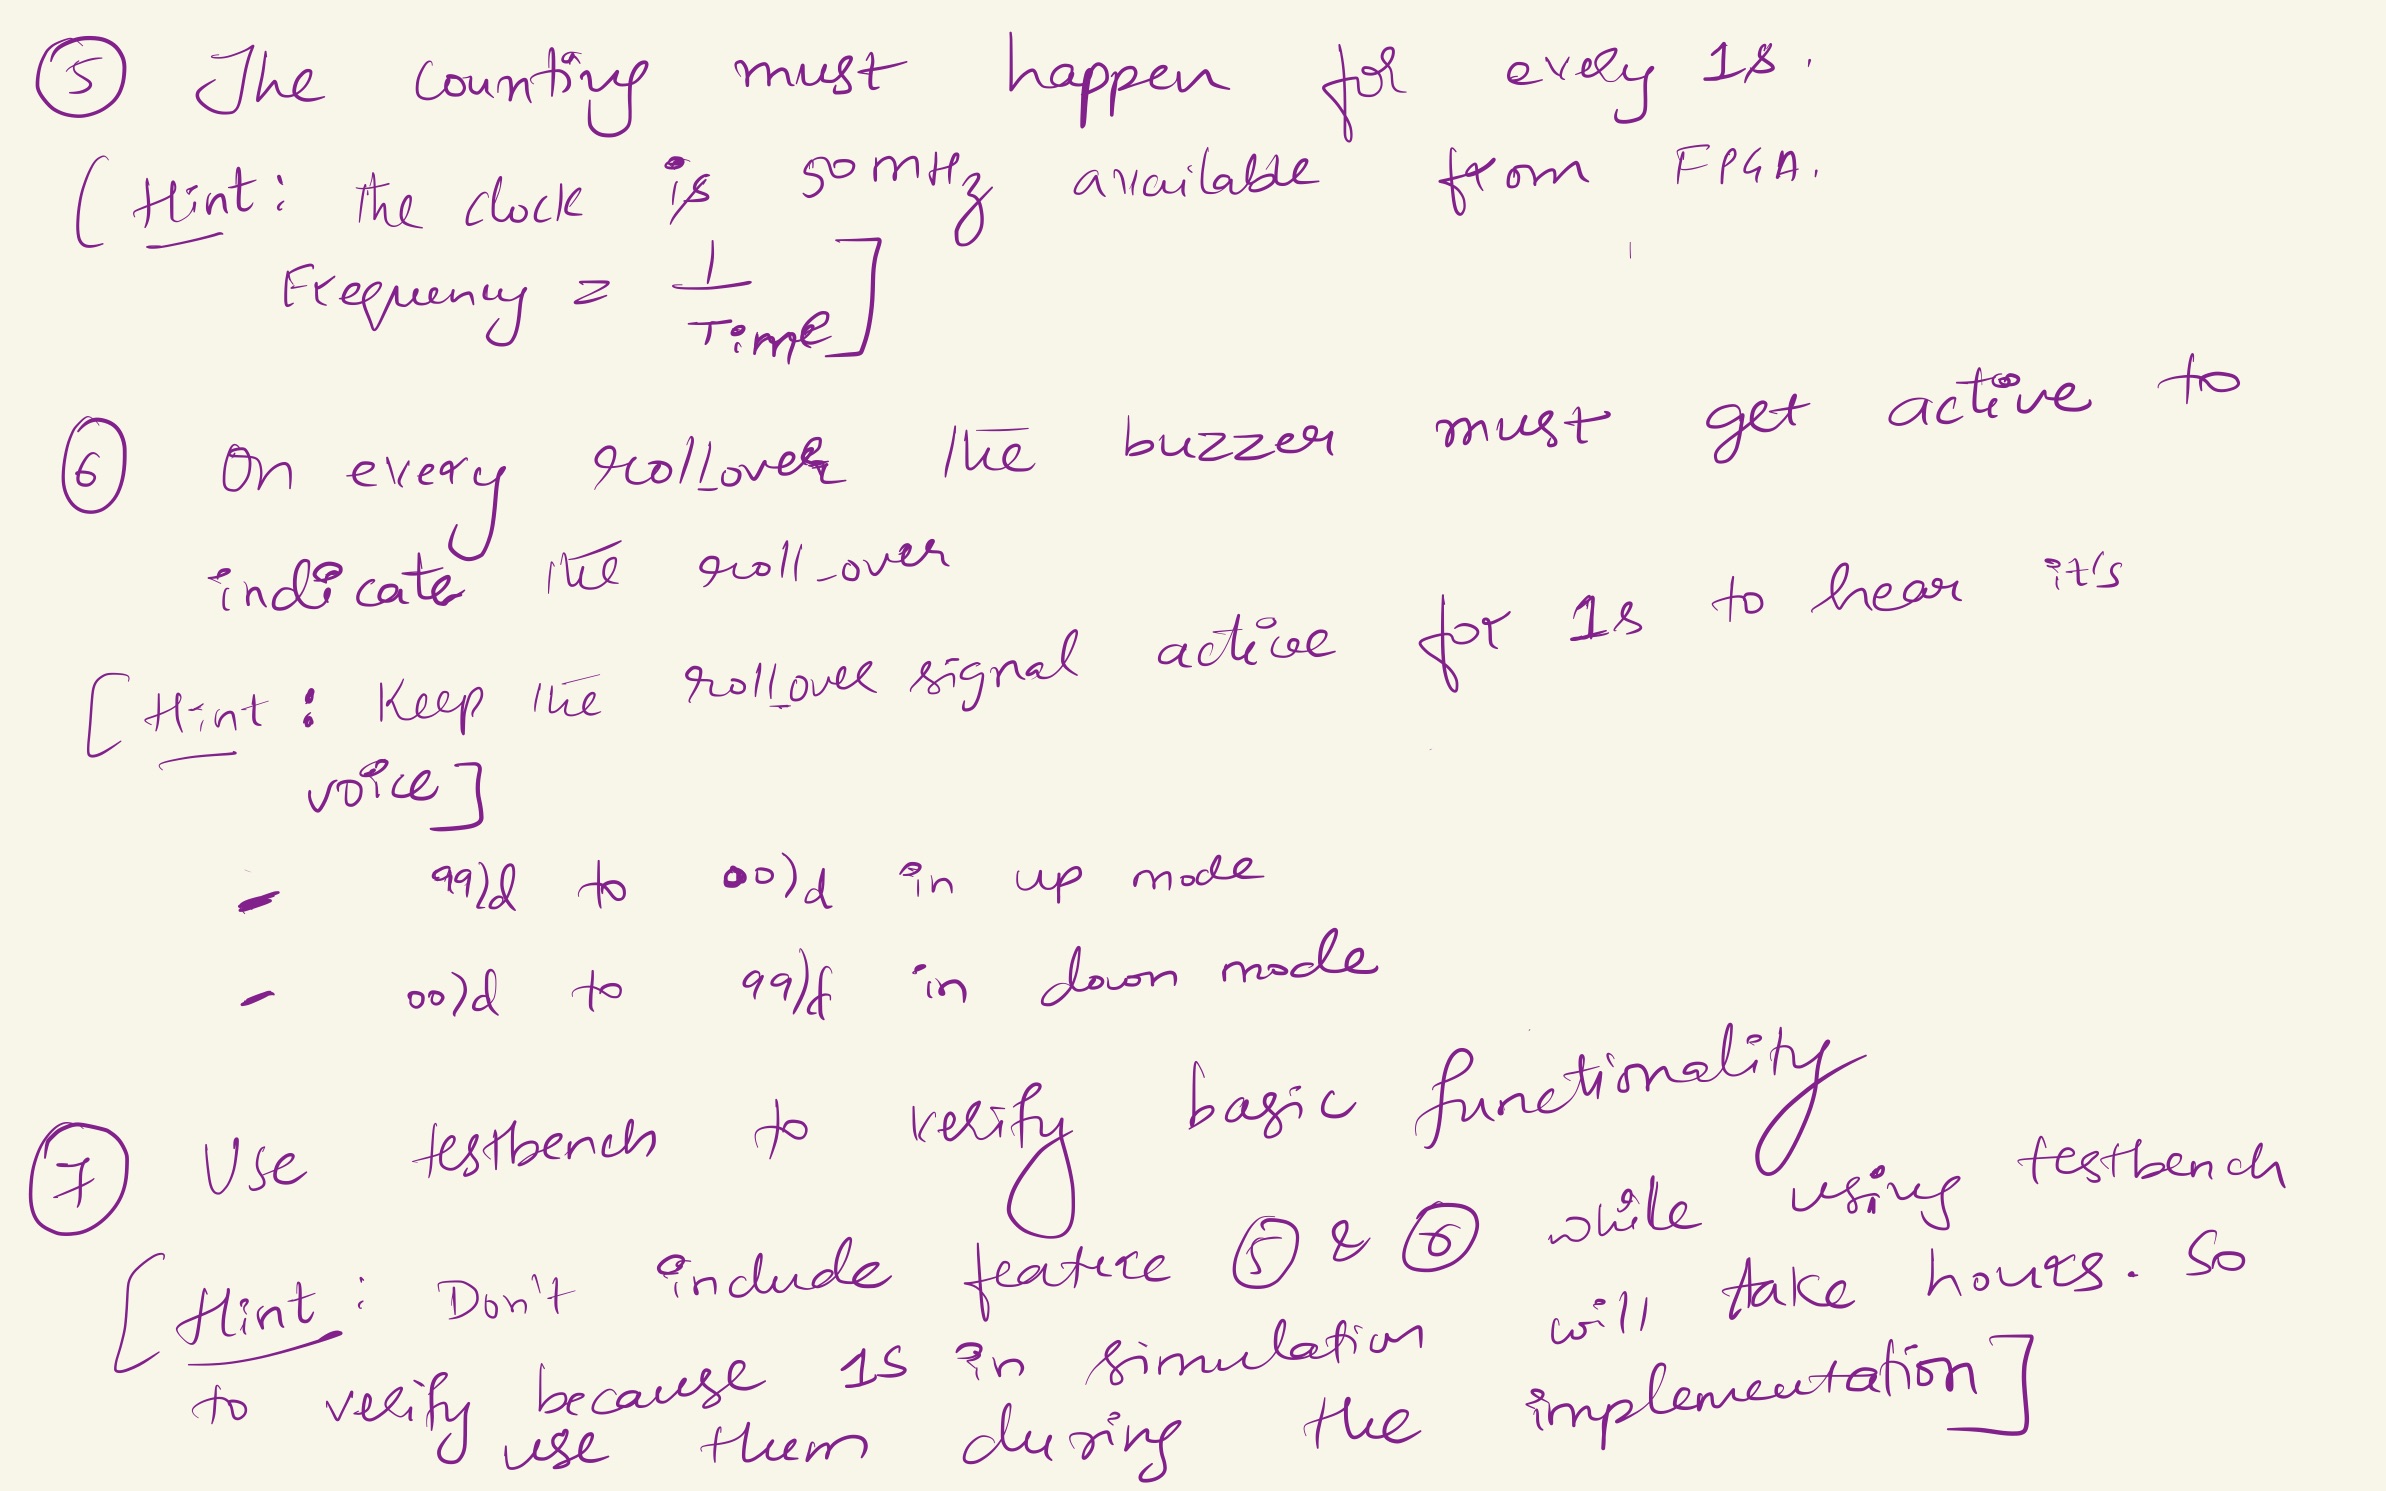 ⑤ The counting must happen for every 1s.
[Hint: the clock is 50 MHz available from FPGA.
Frequency = 1/Time]
⑥ On every rollover the buzzer must get active to
indicate the roll-over
[Hint: Keep the rollover signal active for 1s to hear it's
voice]
- 99)d to 00)d in up mode
- 00)d to 99)d in down mode
⑦ Use testbench to verify basic functionality
[Hint: Don't include feature ⑤ & ⑥ while using testbench
to verify because 1s in simulation will take hours. So
use them during the implementation]